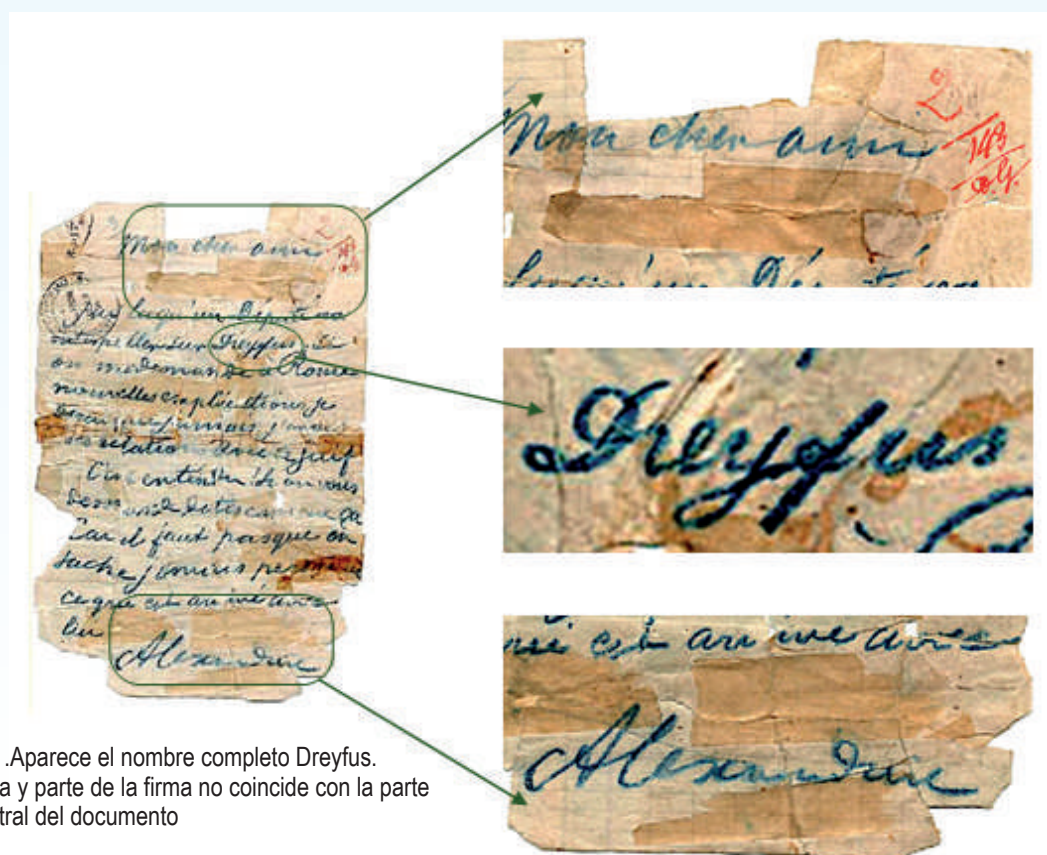 Mon cher ami
J'ai lu qu'un Député va
interpeller sur Dreyfus. Si
on me demande à Rome
nouvelles explications je
dirai que jamais j'avais
relations avec ce juif
C'est entendu. Si on vous
demande dites comme ça
Car il faut pas que on
sache jamais personne
ce que est arrivé avec
lui
Alexandrine
2
Mon cher ami
2
Dreyfus
est arrivé avec
Alexandrine
.Aparece el nombre completo Dreyfus.
a y parte de la firma no coincide con la parte
tral del documento